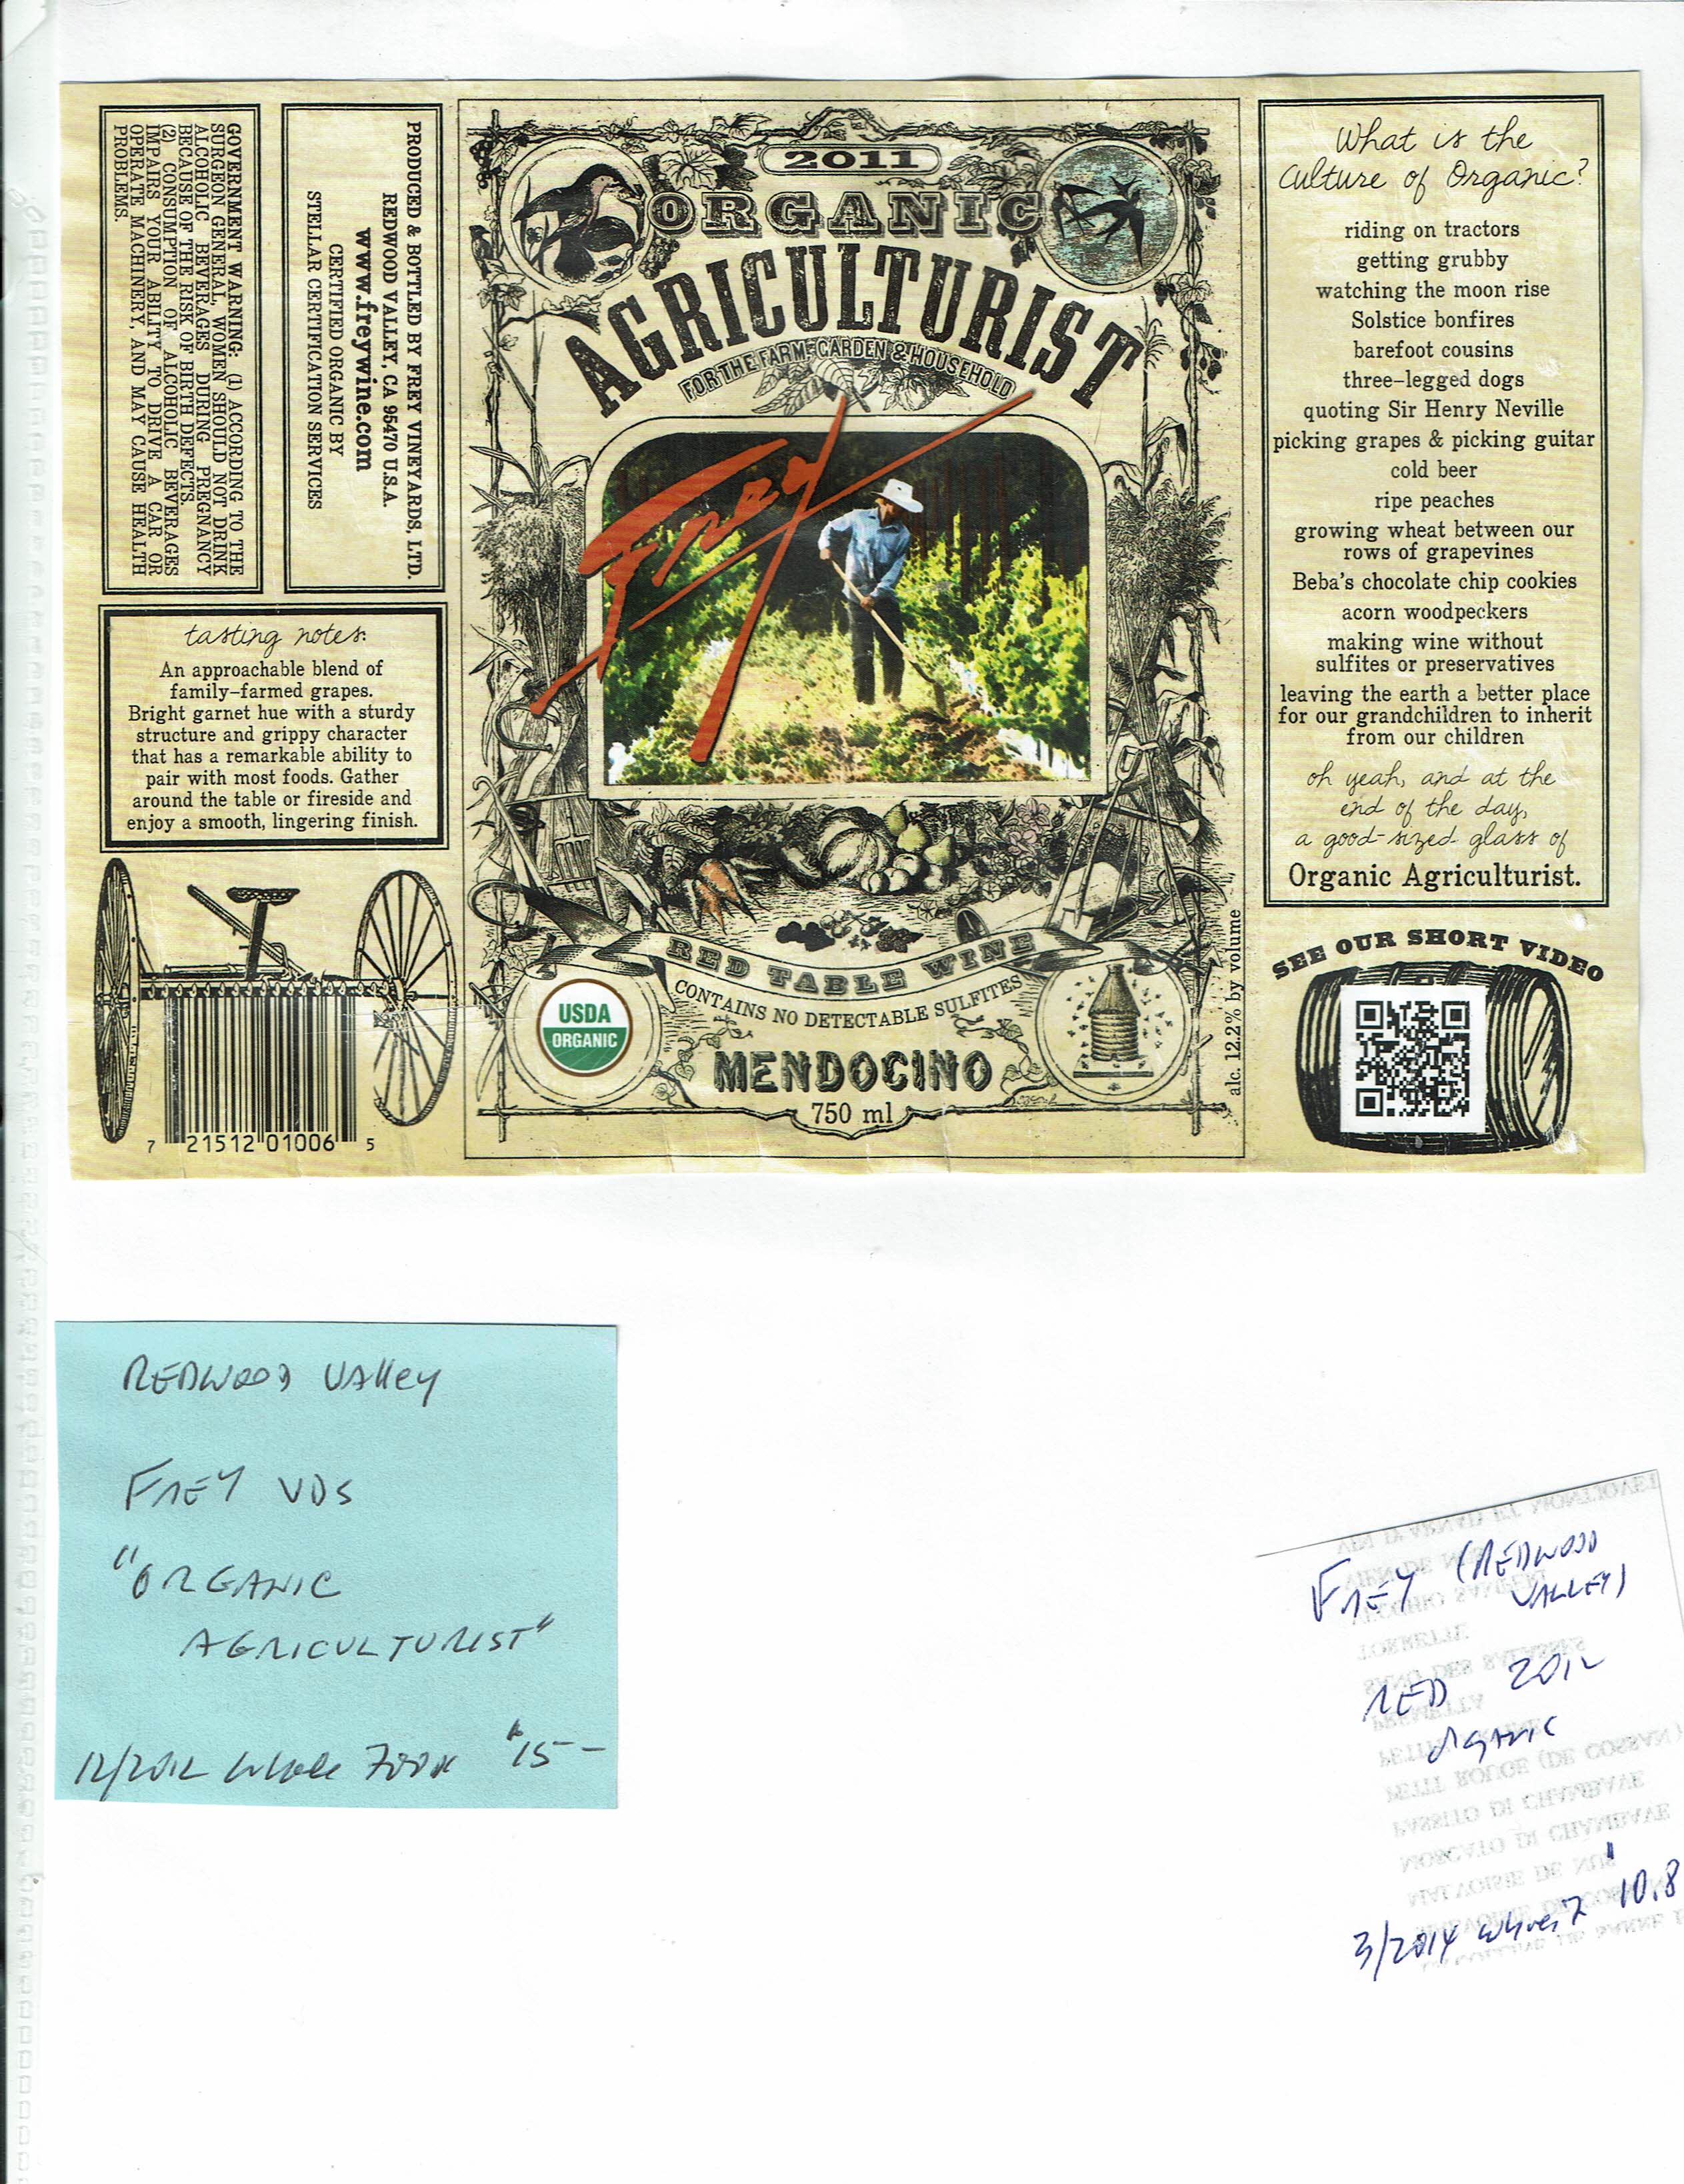 GOVERNMENT WARNING: (1) ACCORDING TO THE
SURGEON GENERAL, WOMEN SHOULD NOT DRINK
ALCOHOLIC BEVERAGES DURING PREGNANCY
BECAUSE OF THE RISK OF BIRTH DEFECTS.
(2) CONSUMPTION OF ALCOHOLIC BEVERAGES
IMPAIRS YOUR ABILITY TO DRIVE A CAR OR
OPERATE MACHINERY, AND MAY CAUSE HEALTH
PROBLEMS.
PRODUCED & BOTTLED BY FREY VINEYARDS, LTD.
REDWOOD VALLEY, CA 95470 U.S.A.
www.freywine.com
CERTIFIED ORGANIC BY
STELLAR CERTIFICATION SERVICES
tasting notes:
An approachable blend of
family-farmed grapes.
Bright garnet hue with a sturdy
structure and grippy character
that has a remarkable ability to
pair with most foods. Gather
around the table or fireside and
enjoy a smooth, lingering finish.
7 21512 01006 5
2011
ORGANIC
AGRICULTURIST
FOR THE FARM, GARDEN & HOUSEHOLD
Frey
RED TABLE WINE
CONTAINS NO DETECTABLE SULFITES
USDA
ORGANIC
MENDOCINO
750 ml
alc. 12.2% by volume
What is the
Culture of Organic?
riding on tractors
getting grubby
watching the moon rise
Solstice bonfires
barefoot cousins
three-legged dogs
quoting Sir Henry Neville
picking grapes & picking guitar
cold beer
ripe peaches
growing wheat between our
rows of grapevines
Beba's chocolate chip cookies
acorn woodpeckers
making wine without
sulfites or preservatives
leaving the earth a better place
for our grandchildren to inherit
from our children
oh yeah, and at the
end of the day,
a good-sized glass of
Organic Agriculturist.
SEE OUR SHORT VIDEO
REDWOOD VAlley
FREY VDS
"ORGANIC
AGRICULTURIST"
12/2012 Whole Foods "15--
FREY (REDWOOD
VALLEY)
RED 2012
OGANIC
3/2014 "10.8